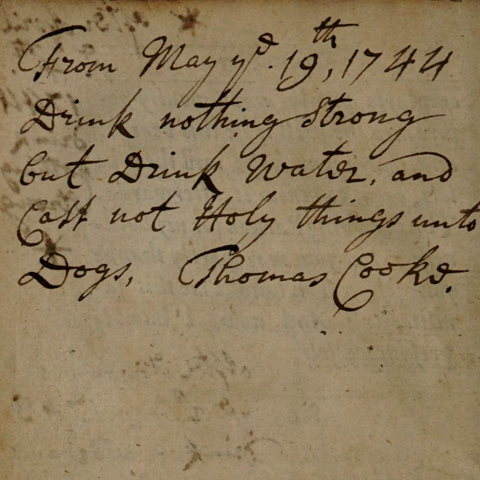 From May yᵉ. 19th, 1744
Drink nothing Strong
but Drink Water, and
Cast not Holy things unto
Dogs, Thomas Cooke.